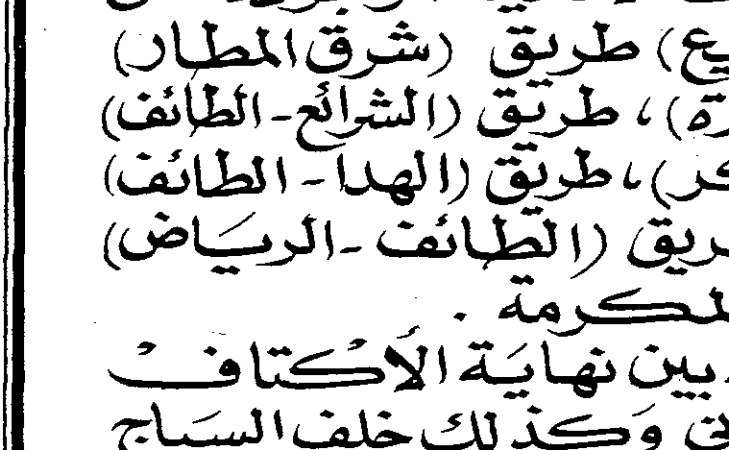 يع) طريق (شرق المطار)
رة)، طريق (الشرائع - الطائف)
كر)، طريق (الهدا - الطائف)
ريق (الطائف - الرياض)
لمكرمة .
بين نهاية الأكتاف
وكذلك خلف السياج